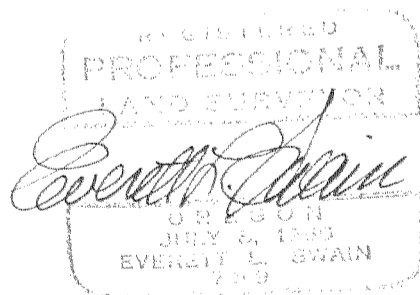 REGISTERED
PROFESSIONAL
LAND SURVEYOR
Everett L. Swain
OREGON
JULY
EVERETT L. SWAIN
759